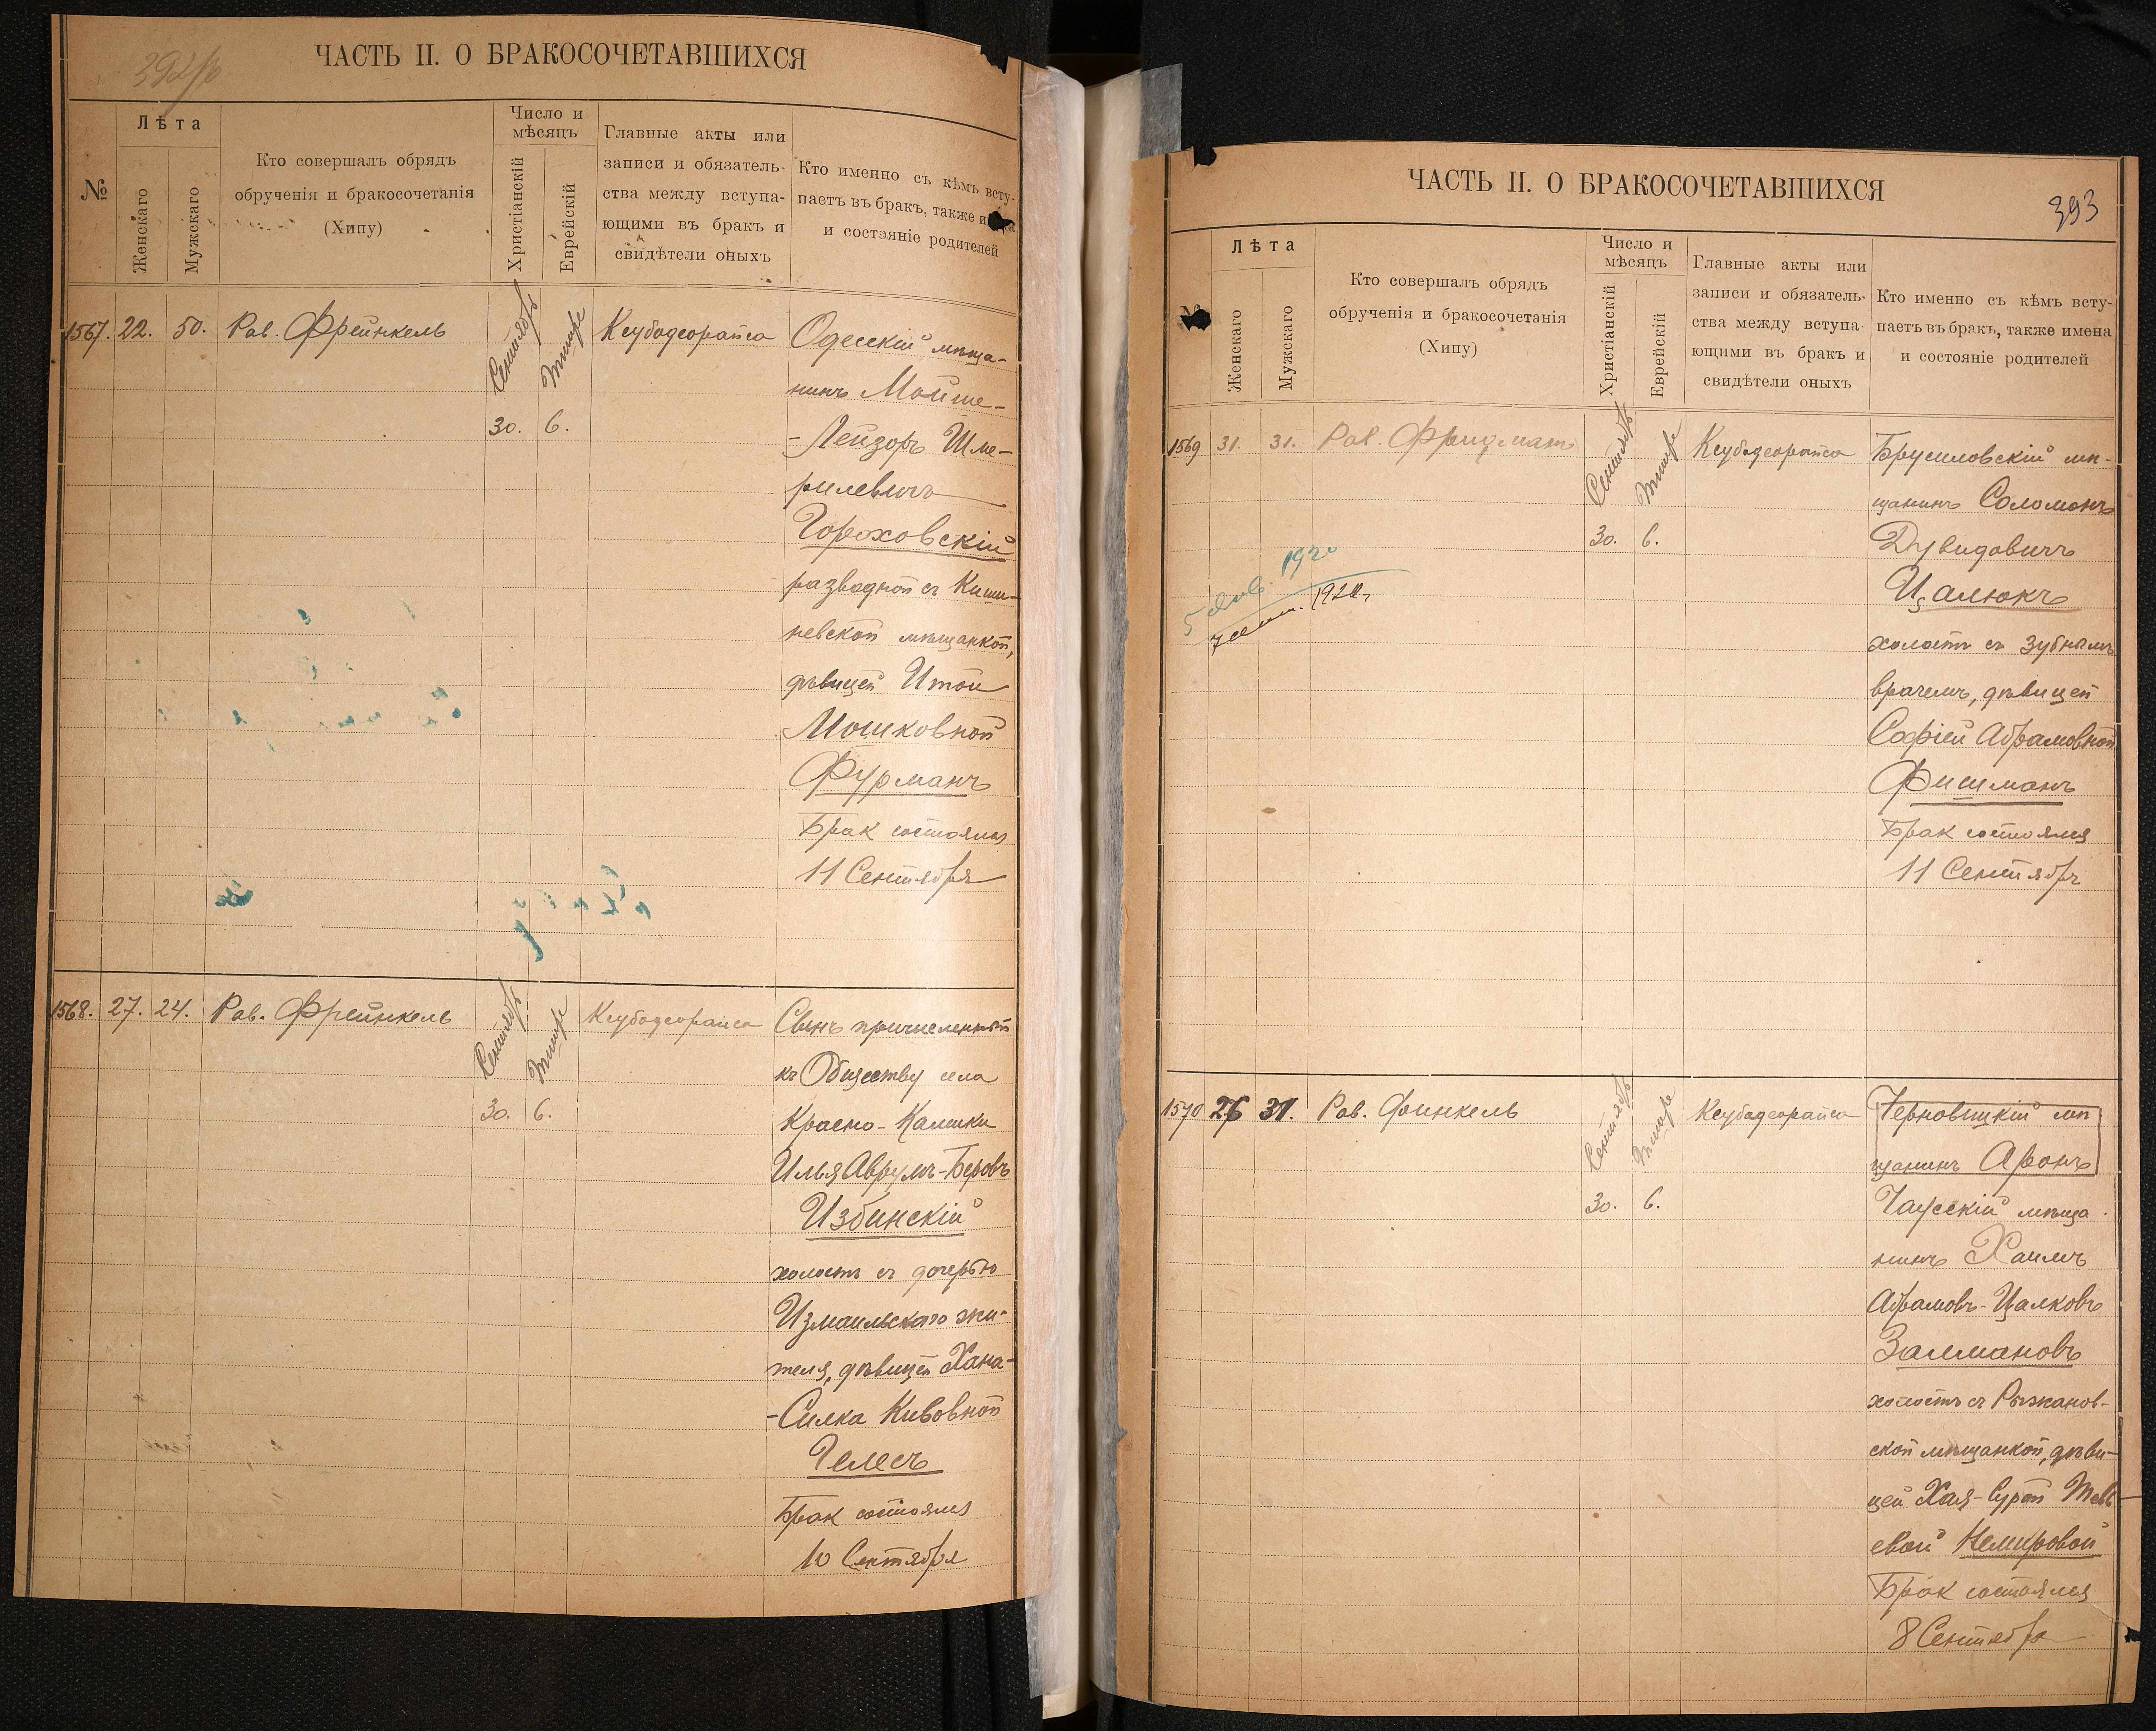 392/в
ЧАСТЬ II. О БРАКОСОЧЕТАВШИХСЯ
№
Лѣта
Женскаго
Мужскаго
Кто совершалъ обрядъ
обрученія и бракосочетанія
(Хипу)
Число и
мѣсяцъ
Христіанскій
Еврейскій
Главные акты или
записи и обязатель-
ства между вступа-
ющими въ бракъ и
свидѣтели оныхъ
Кто именно съ кѣмъ всту-
паетъ въ бракъ, также
и состояніе родителей
1567. 22. 50. Рав. Фрейнкель
Сентябрь
Тишре
30. 6.
Ксубодеорайса
Одесскій мѣща-
нинъ Мойше-
-Лейзоръ Шме-
рилевичъ
Гороховскій
разводной съ Киши-
невской мѣщанкой,
дѣвицей Итой
Мошковной
Фурманъ
Брак состоялся
11 Сентября
1568. 27. 24. Рав. Фрейнкель
Сентябрь
Тишре
30. 6.
Ксубодеорайса
Сынъ причисленный
къ Обществу села
Красно-Каменки
Илья Аврумъ-Беровъ
Избинскій
холостъ съ дочерью
Измаильскаго жи-
теля, дѣвицей Хана-
-Силка Кивовной
Гелесъ
Брак состоялся
10 Сентября
ЧАСТЬ II. О БРАКОСОЧЕТАВШИХСЯ
393
№
Лѣта
Женскаго
Мужскаго
Кто совершалъ обрядъ
обрученія и бракосочетанія
(Хипу)
Число и
мѣсяцъ
Христіанскій
Еврейскій
Главные акты или
записи и обязатель-
ства между вступа-
ющими въ бракъ и
свидѣтели оныхъ
Кто именно съ кѣмъ всту-
паетъ въ бракъ, также имена
и состояніе родителей
1569 31. 31. Рав. Фридманъ
Сентябрь
Тишре
30. 6.
Ксубодеорайса
5 Янв. 1920
7 сент. 1920 г
Брусиловскій мѣ-
щанинъ Соломонъ
Дувидовичъ
Цалюкъ
холостъ съ зубнымъ
врачемъ, дѣвицей
Софіей Абрамовной
Фишманъ
Брак состоялся
11 Сентябрь
1570 26 31. Рав. Финкель
Сентябрь
Тишре
30. 6.
Ксубодеорайса
Черновицкій мѣ
щанинъ Аронъ
Чаусскій мѣща
нинъ Хаимъ
Абрамовъ-Цалковъ
Залмановъ
холостъ съ Рыжанов-
ской мѣщанкой, дѣви-
цей Хая-Сурой Тевь
евой Немировой
Брак состоялся
8 Сентября